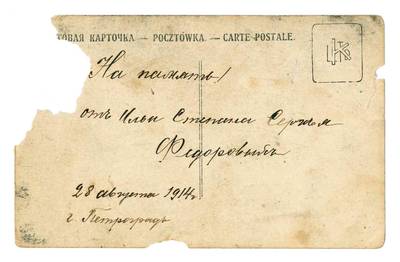 ТОВАЯ КАРТОЧКА. — POCZTÓWKA. — CARTE POSTALE.
На память!
отъ Ильи Степана Сергѣя
Ѳедоровыхъ
28 августа 1914 г
г. Петроградъ